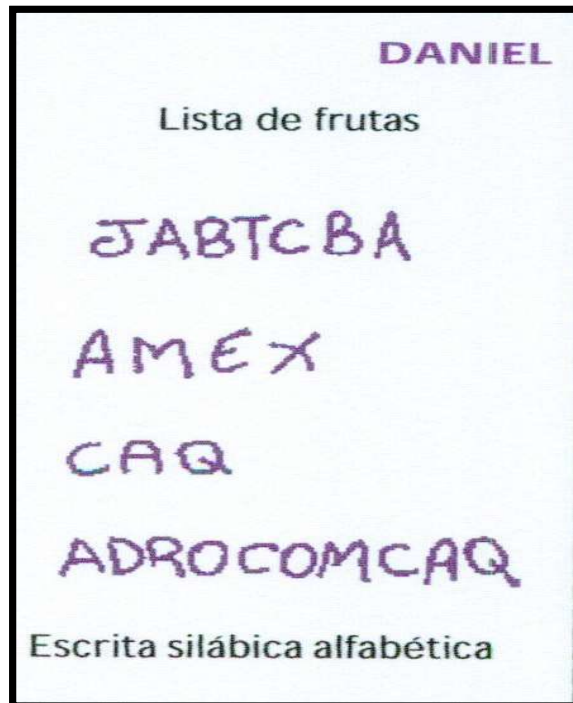 DANIEL
Lista de frutas
JABTCBA
AMEX
CAQ
ADROCOMCAQ
Escrita silábica alfabética